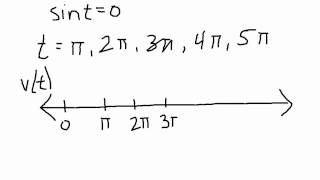 sint=0
t=π, 2π, 3π, 4π, 5π
v(t)
0 π 2π 3π